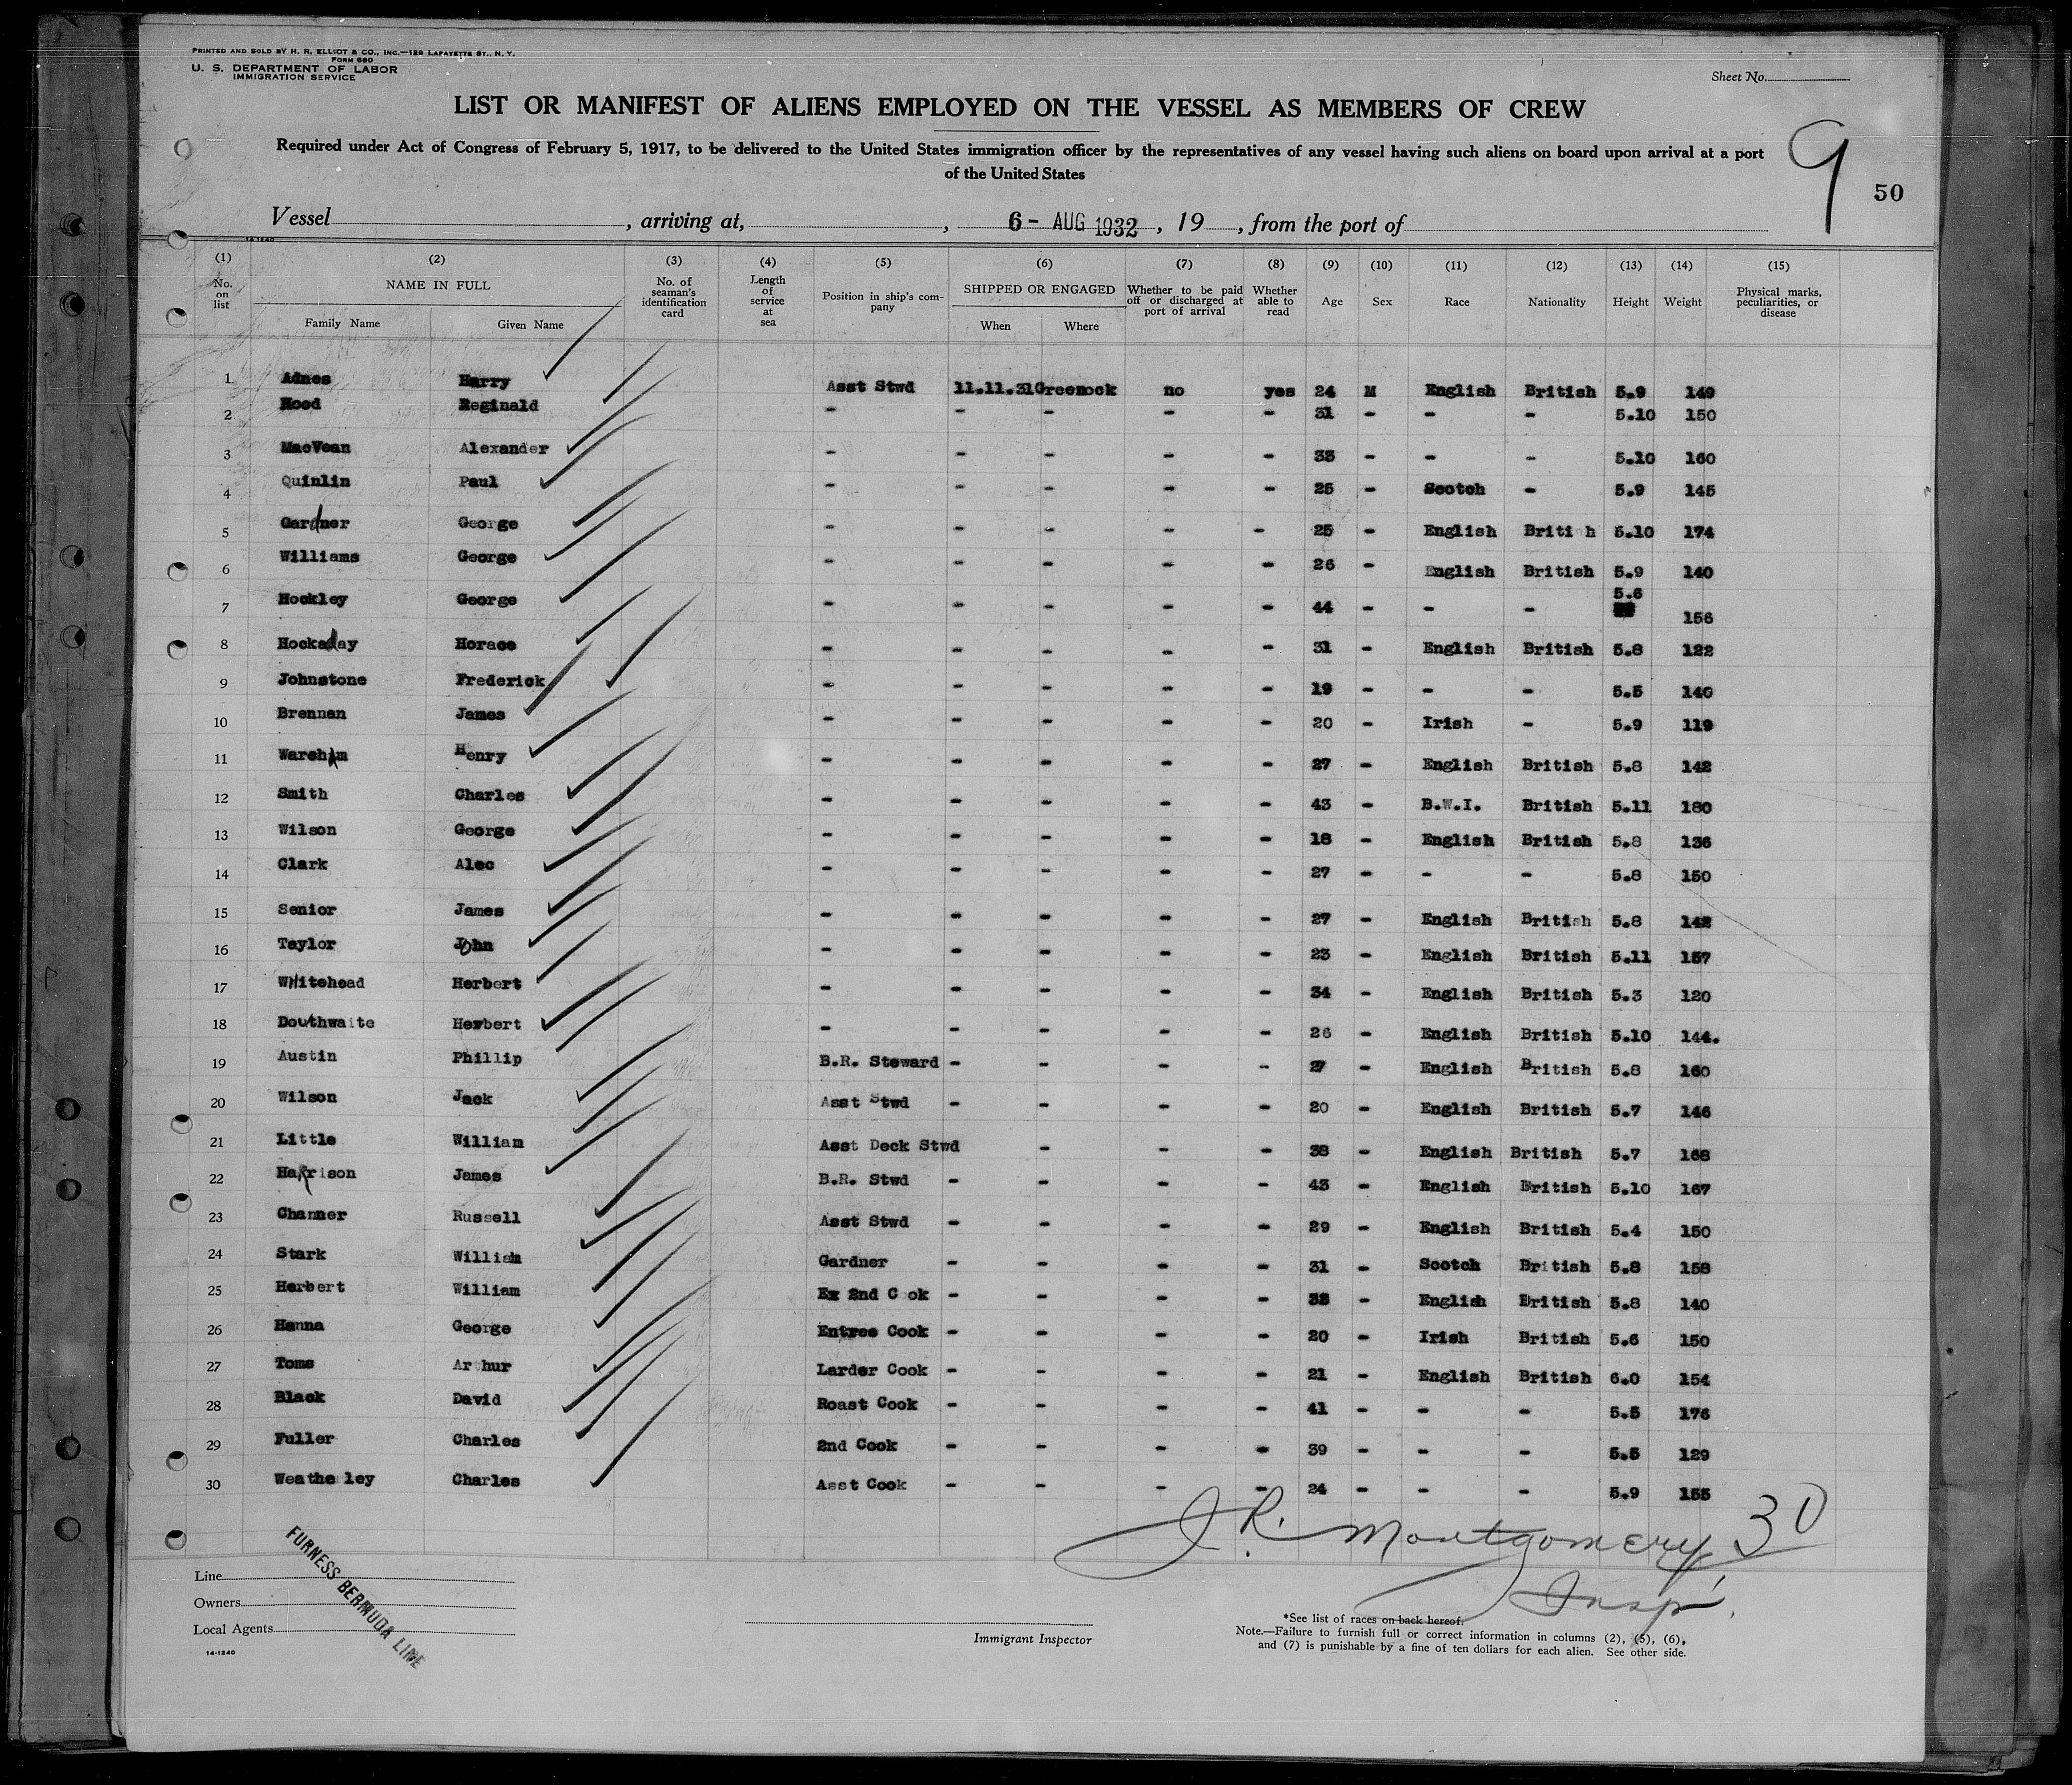 PRINTED AND SOLD BY H. R. ELLIOT & CO., INC.—129 LAFAYETTE ST., N. Y.
FORM 680
U. S. DEPARTMENT OF LABOR
IMMIGRATION SERVICE
Sheet No.
LIST OR MANIFEST OF ALIENS EMPLOYED ON THE VESSEL AS MEMBERS OF CREW
Required under Act of Congress of February 5, 1917, to be delivered to the United States immigration officer by the representatives of any vessel having such aliens on board upon arrival at a port
of the United States
9
50
Vessel , arriving at, , 6- AUG 1932 , 19 , from the port of
14-1240
(1) No. on list (2) NAME IN FULL Family Name Given Name (3) No. of seaman's identification card (4) Length of service at sea (5) Position in ship's company (6) SHIPPED OR ENGAGED When Where (7) Whether to be paid off or discharged at port of arrival (8) Whether able to read (9) Age (10) Sex (11) Race (12) Nationality (13) Height (14) Weight (15) Physical marks, peculiarities, or disease
1 Adnes Harry Asst Stwd 11.11.31 Greenock no yes 24 M English British 5.9 149
2 Hood Reginald - - - - - 31 - - - 5.10 150
3 MacVean Alexander - - - - - 33 - - - 5.10 160
4 Quinlin Paul - - - - - 25 - Scotch - 5.9 145
5 Gardner George - - - - - 25 - English Briti h 5.10 174
6 Williams George - - - - - 26 - English British 5.9 140
7 Hockley George - - - - - 44 - - - 5.6 156
8 Hockaday Horace - - - - - 31 - English British 5.8 122
9 Johnstone Frederick - - - - - 19 - - - 5.5 140
10 Brennan James - - - - - 20 - Irish - 5.9 119
11 Wareham Henry - - - - - 27 - English British 5.8 142
12 Smith Charles - - - - - 43 - B.W.I. British 5.11 180
13 Wilson George - - - - - 18 - English British 5.8 136
14 Clark Alec - - - - - 27 - - - 5.8 150
15 Senior James - - - - - 27 - English British 5.8 142
16 Taylor John - - - - - 23 - English British 5.11 157
17 Whitehead Herbert - - - - - 34 - English British 5.3 120
18 Douthwaite Herbert - - - - - 26 - English British 5.10 144.
19 Austin Phillip B.R. Steward - - - - 27 - English British 5.8 160
20 Wilson Jack Asst Stwd - - - - 20 - English British 5.7 146
21 Little William Asst Deck Stwd - - - 38 - English British 5.7 168
22 Harrison James B.R. Stwd - - - - 43 - English British 5.10 167
23 Channer Russell Asst Stwd - - - - 29 - English British 5.4 150
24 Stark William Gardner - - - - 31 - Scotch British 5.8 158
25 Herbert William Ex 2nd C ok - - - - 38 - English British 5.8 140
26 Hanna George Entree Cook - - - - 20 - Irish British 5.6 150
27 Toms Ar hur Larder Cook - - - - 21 - English British 6.0 154
28 Black David Roast Cook - - - - 41 - - - 5.5 176
29 Fuller Charles 2nd Cook - - - - 39 - - - 5.5 129
30 Weathe ley Charles Asst Cook - - - - 24 - - - 5.9 155
J. R. Montgomery 30
Insp.
Line
Owners
Local Agents
FURNESS BERMUDA LINE
14-1240
Immigrant Inspector
*See list of races on back hereof.
Note.—Failure to furnish full or correct information in columns (2), (5), (6),
and (7) is punishable by a fine of ten dollars for each alien. See other side.